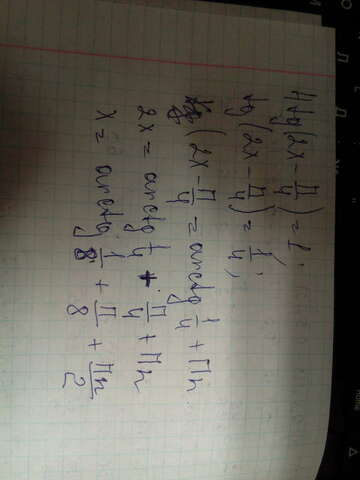 4tg(2x - π/4) = 1;
tg(2x - π/4) = 1/4;
(2x - π/4) = arctg 1/4 + πn
2x = arctg 1/4 + π/4 + πn
x = arctg 1/8 + π/8 + πn/2